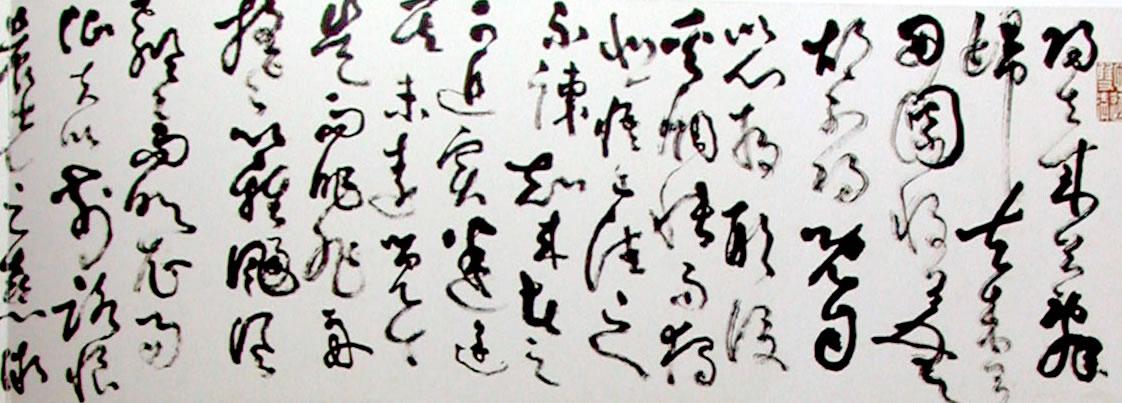 歸去来兮辭
歸去来兮
田園將蕪
胡不歸既自
以心為形役
奚惆悵而獨
悲悟已往之
不諫知来者之
可追實迷途
其未遠覺今
是而昨非舟
搖々以輕颺風
飄々而吹衣問
征夫以前路恨
晨光之熹微